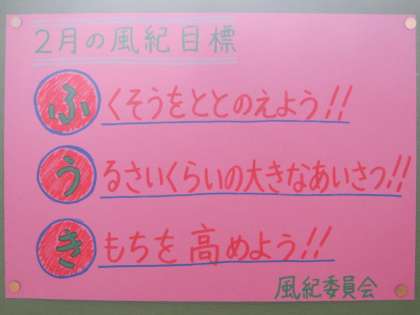 2月の風紀目標
ふくそうをととのえよう!!
うるさいくらいの大きなあいさつ!!
きもちを高めよう!!
風紀委員会